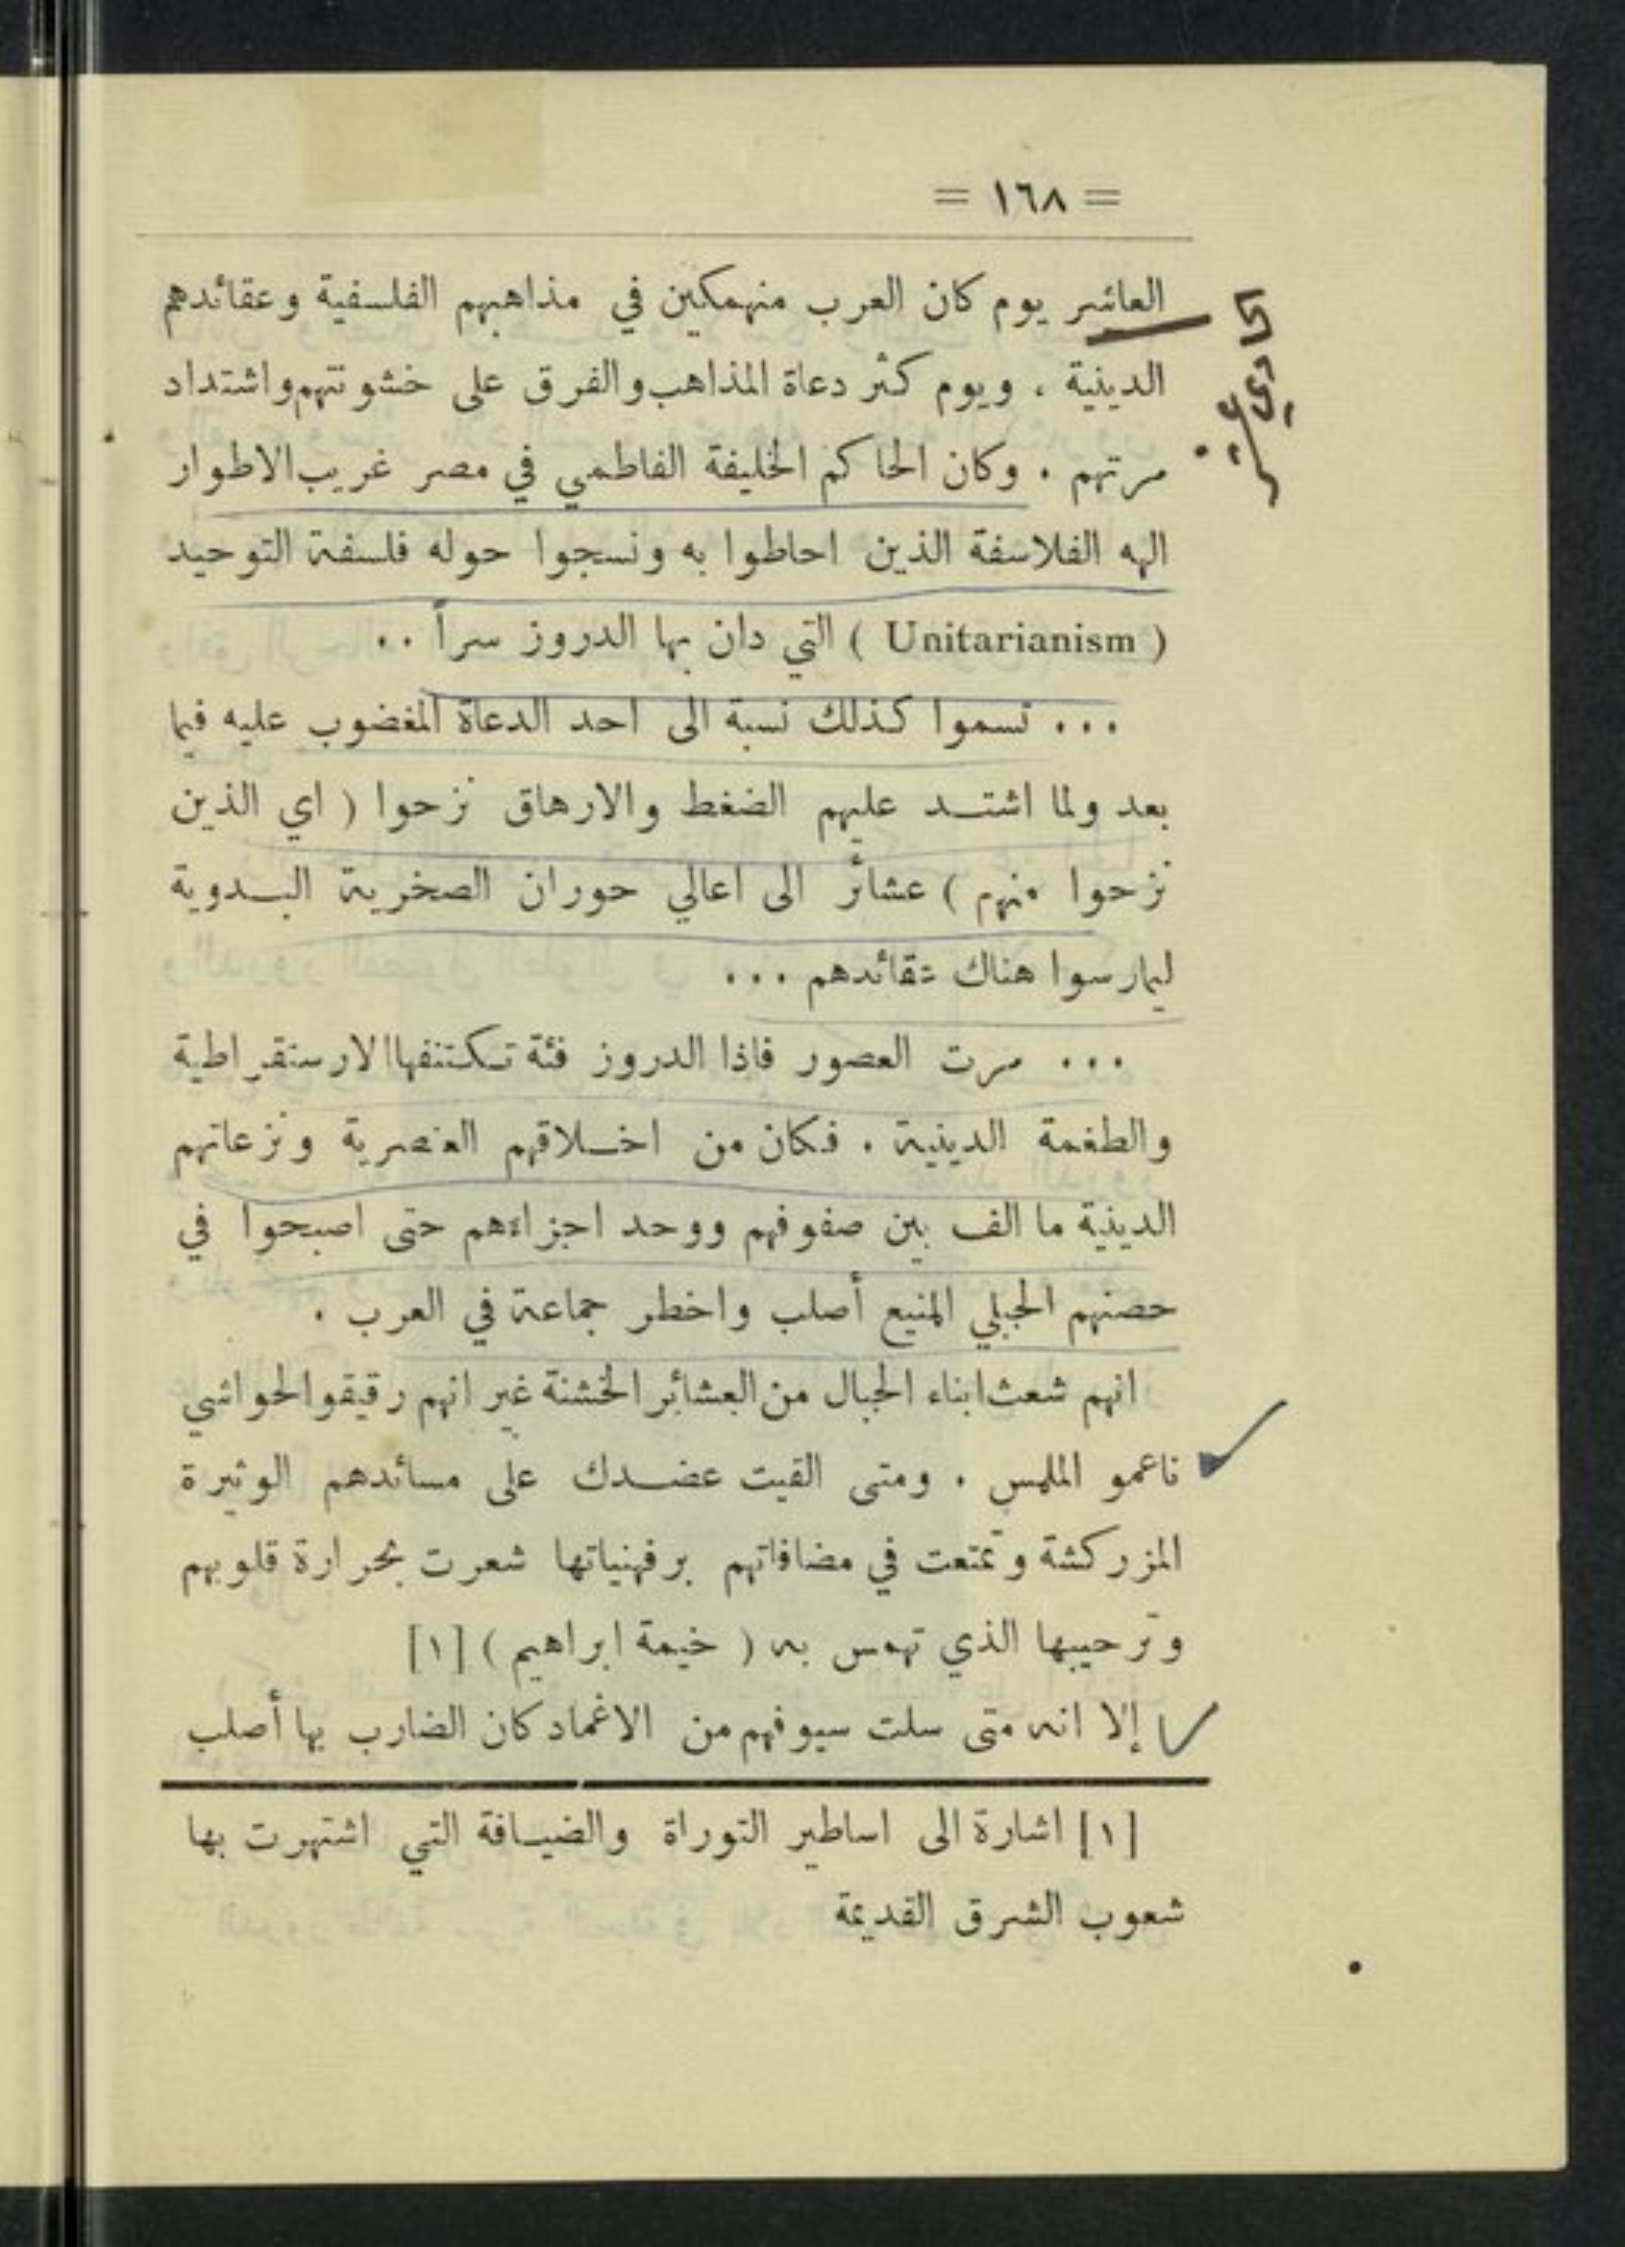 = ١٦٨ =
العاشر يوم كان العرب منهمكين في مذاهبهم الفلسفية وعقائدهم
الحادي عشر
الدينية ، ويوم كثر دعاة المذاهب والفرق على خشونتهم واشتداد
مرتهم . وكان الحاكم الخليفة الفاطمي في مصر غريب الاطوار
الهه الفلاسفة الذين احاطوا به ونسجوا حوله فلسفة التوحيد
( Unitarianism ) التي دان بها الدروز سراً ..
... تسموا كذلك نسبة الى احد الدعاة المغضوب عليه فيما
بعد ولما اشتد عليهم الضغط والارهاق نزحوا ( اي الذين
نزحوا منهم ) عشائر الى اعالي حوران الصخرية البدوية
ليمارسوا هناك عقائدهم ...
... مرت العصور فاذا الدروز فئة تكتنفها الارستقراطية
والطغمة الدينية . فكان من اخلاقهم العنصرية ونزعاتهم
الدينية ما الف بين صفوفهم ووحد اجزاءهم حتى اصبحوا في
حصنهم الجبلي المنيع أصلب واخطر جماعة في العرب .
انهم شعث ابناء الجبال من العشائر الخشنة غير انهم رقيقو الحواشي
ناعمو الملمس . ومتى القيت عضدك على مساندهم الوثيرة
المزركشة وتمتعت في مضافاتهم برفهنياتها شعرت بحرارة قلوبهم
وترحيبها الذي تهمس به ( خيمة ابراهيم ) [١]
إلا انه متى سلت سيوفهم من الاغماد كان الضارب بها أصلب
[١] اشارة الى اساطير التوراة والضيافة التي اشتهرت بها
شعوب الشرق القديمة